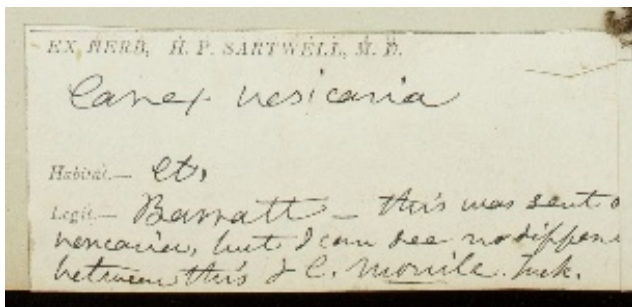 EX HERB, H. P. SARTWELL, M. D.
Carex vesicaria
Habitat.— Ct,
Legit.— Barratt — this was sent
vesicaria, but I can see no differen
between this & C. Monile. Tuck.